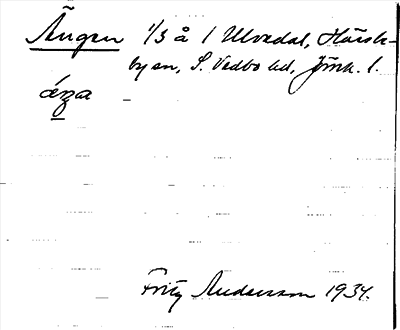 Ängen 1/3 å 1 Ulvedal, Häradsbyn,
S. Vedbo hd, Jönk. l.
Fritz Andersson 1934.